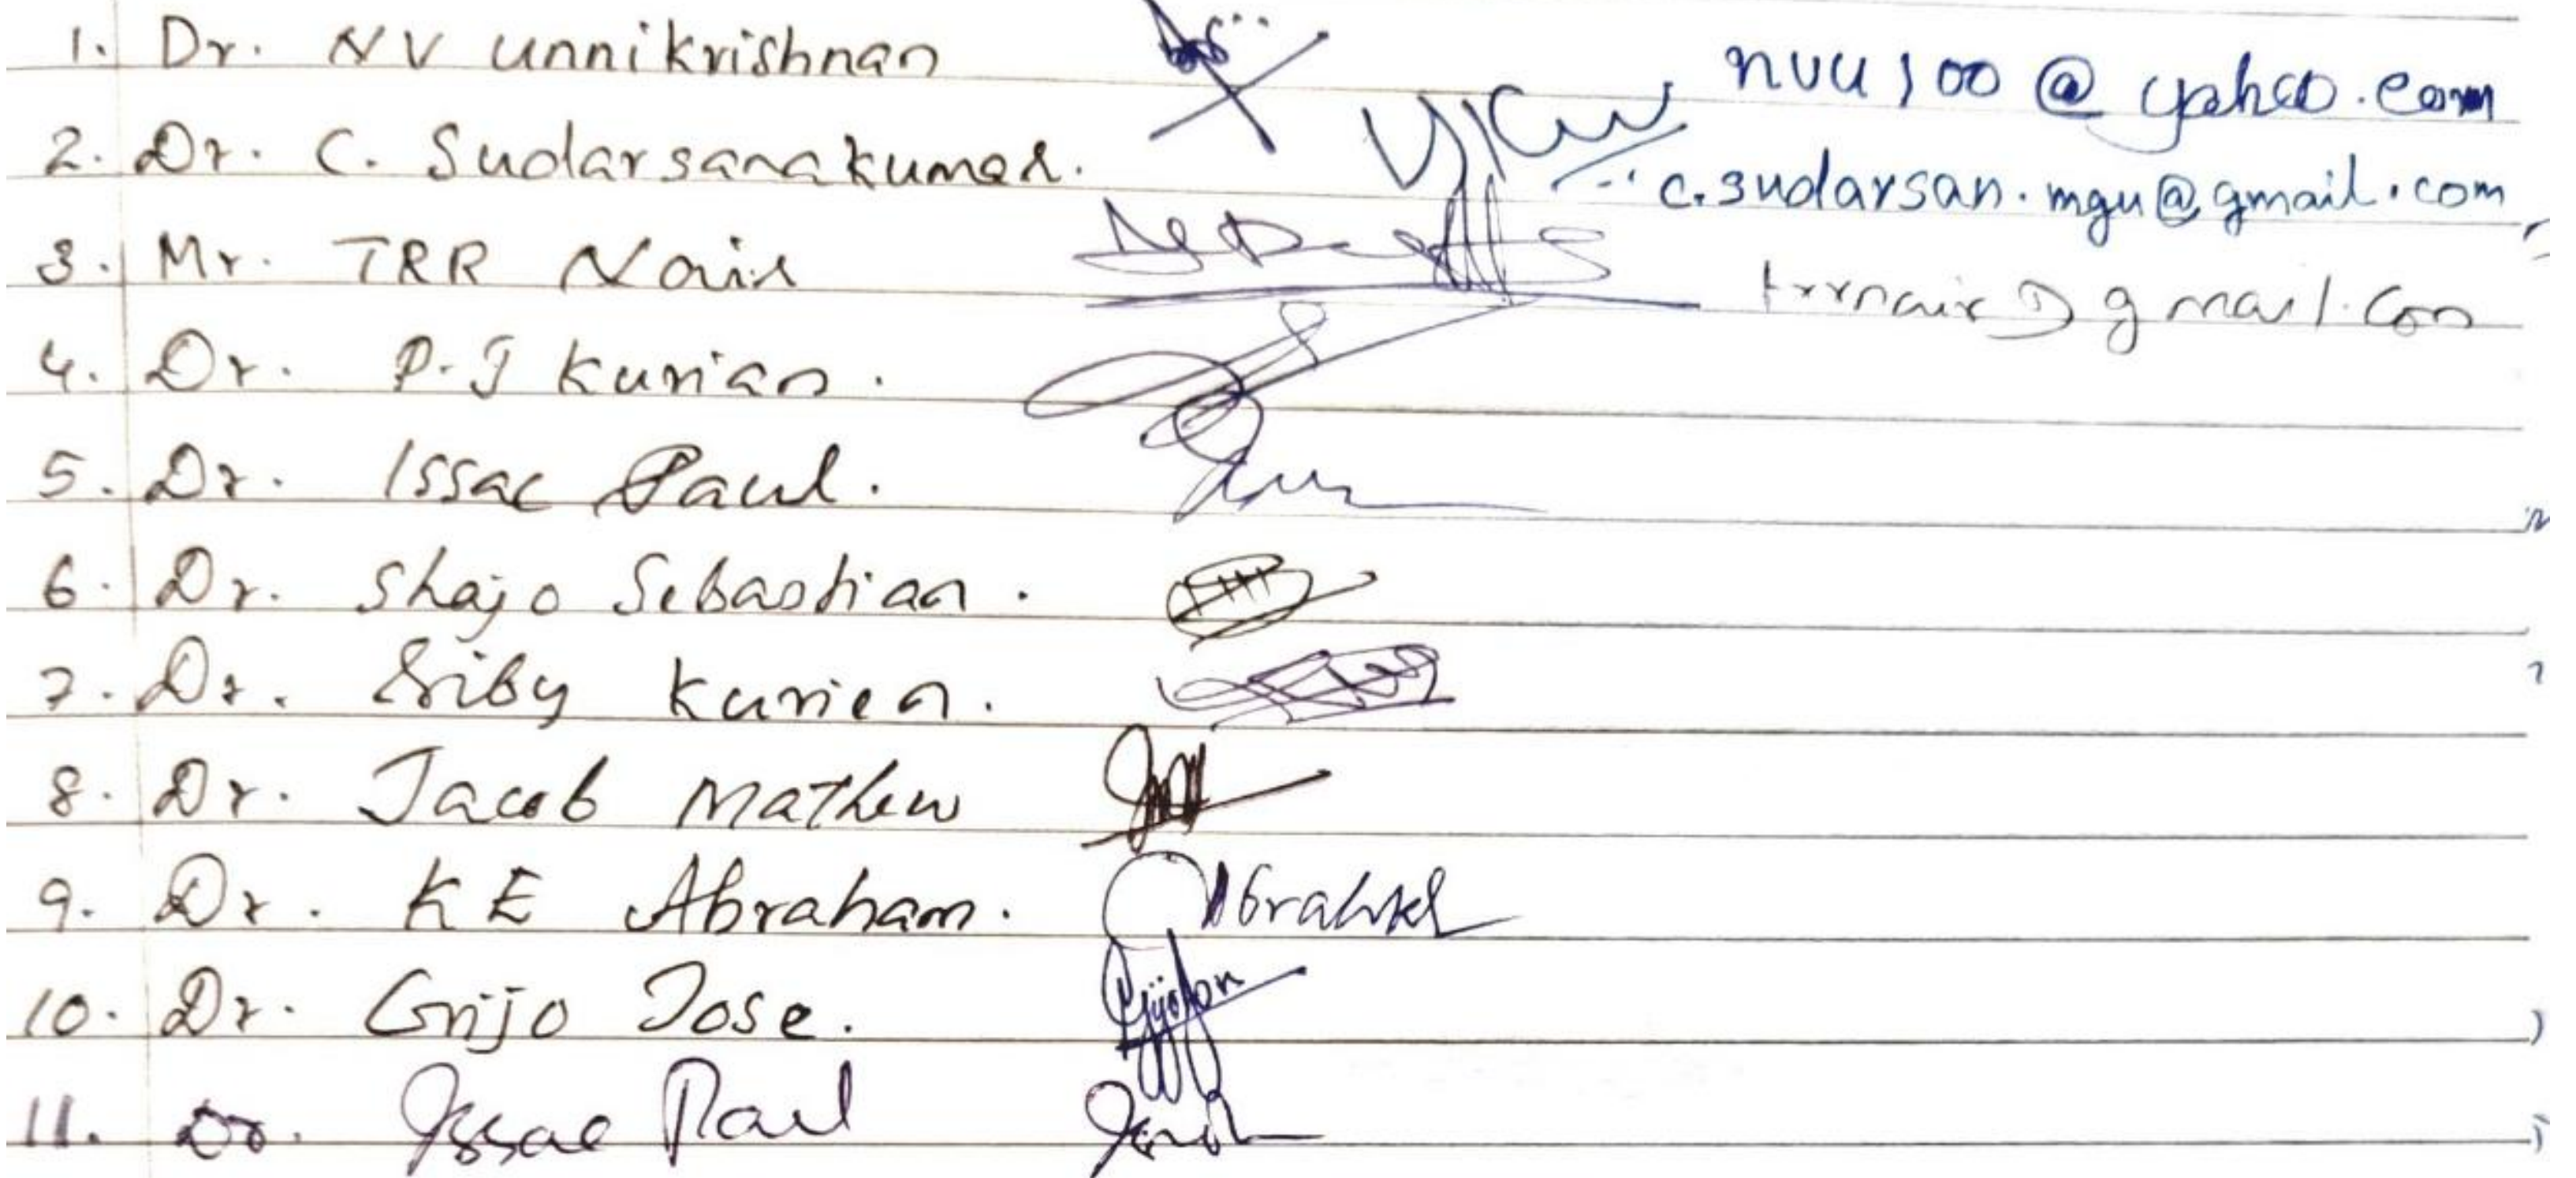 1. Dr. NV unnikrishnan nvu100@yahoo.com
2. Dr. C. Sudarsanakumar. c.sudarsan.mgu@gmail.com
3. Mr. TRR Nair trrnair@gmail.com
4. Dr. P.J Kurian.
5. Dr. Issac Paul.
6. Dr. Shajo Sebastian.
7. Dr. Siby Kurien.
8. Dr. Jacob Mathew
9. Dr. KE Abraham. Abraham
10. Dr. Gijo Jose.
11. Dr. Issac Paul